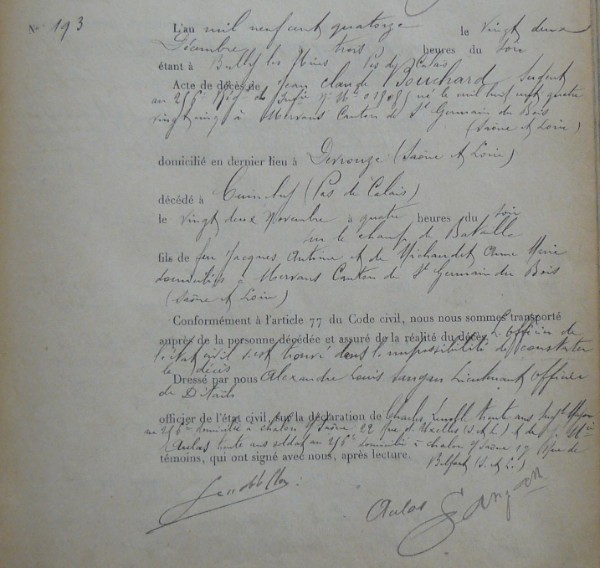 N° 193
L'an mil neuf cent quatorze le vingt deux
Décembre trois heures du soir
étant à Bully les Mines Pas de Calais
Acte de décès de Jean Claude Bouchard Sergent
au 256e Rég. de Inf. né le mil huit cent quatre
vingt à Mervans Canton de St Germain du Bois
(Saône et Loire)
domicilié en dernier lieu à Devrouze (Saône et Loire)
décédé à (Pas de Calais)
le vingt deux Novembre à quatre heures du soir
sur le champ de Bataille
fils de feu Jacques Antoine et de Michaudet Anne Marie
domiciliés à Mervans Canton de St Germain du Bois
(Saône et Loire)
Conformément à l'article 77 du Code civil, nous nous sommes transporté
auprès de la personne décédée et assuré de la réalité du décès. L'officier de
l'état civil s'est trouvé dans l'impossibilité de constater
le décès
Dressé par nous Alexandre Louis Lieutenant officier
de Détails
officier de l'état civil, sur la déclaration de Charles trente ans
au 256e domicilié à Chalon s/ Saône 22 rue (S. et L.) et de
Aulas trente ans soldat au 256e domicilié à Chalon s/ Saône 17 Rue de
témoins, qui ont signé avec nous, après lecture. Belfort (S. et L.)
Aulas